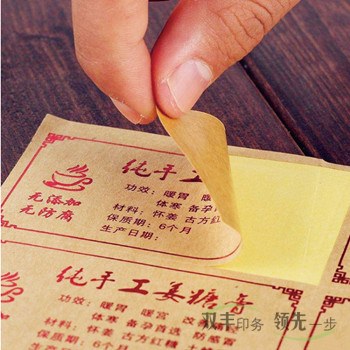 纯手工
无添加
无防腐
功效：暖胃 暖
体寒 备孕
材料：怀姜 古方红
保质期：6个月
生产日期：
纯手工姜糖膏
功效：暖胃 暖宫 改
体寒 备孕首选 防感冒
材料：怀姜 古方红糖
保质期：6个月
双丰印务 领先一步